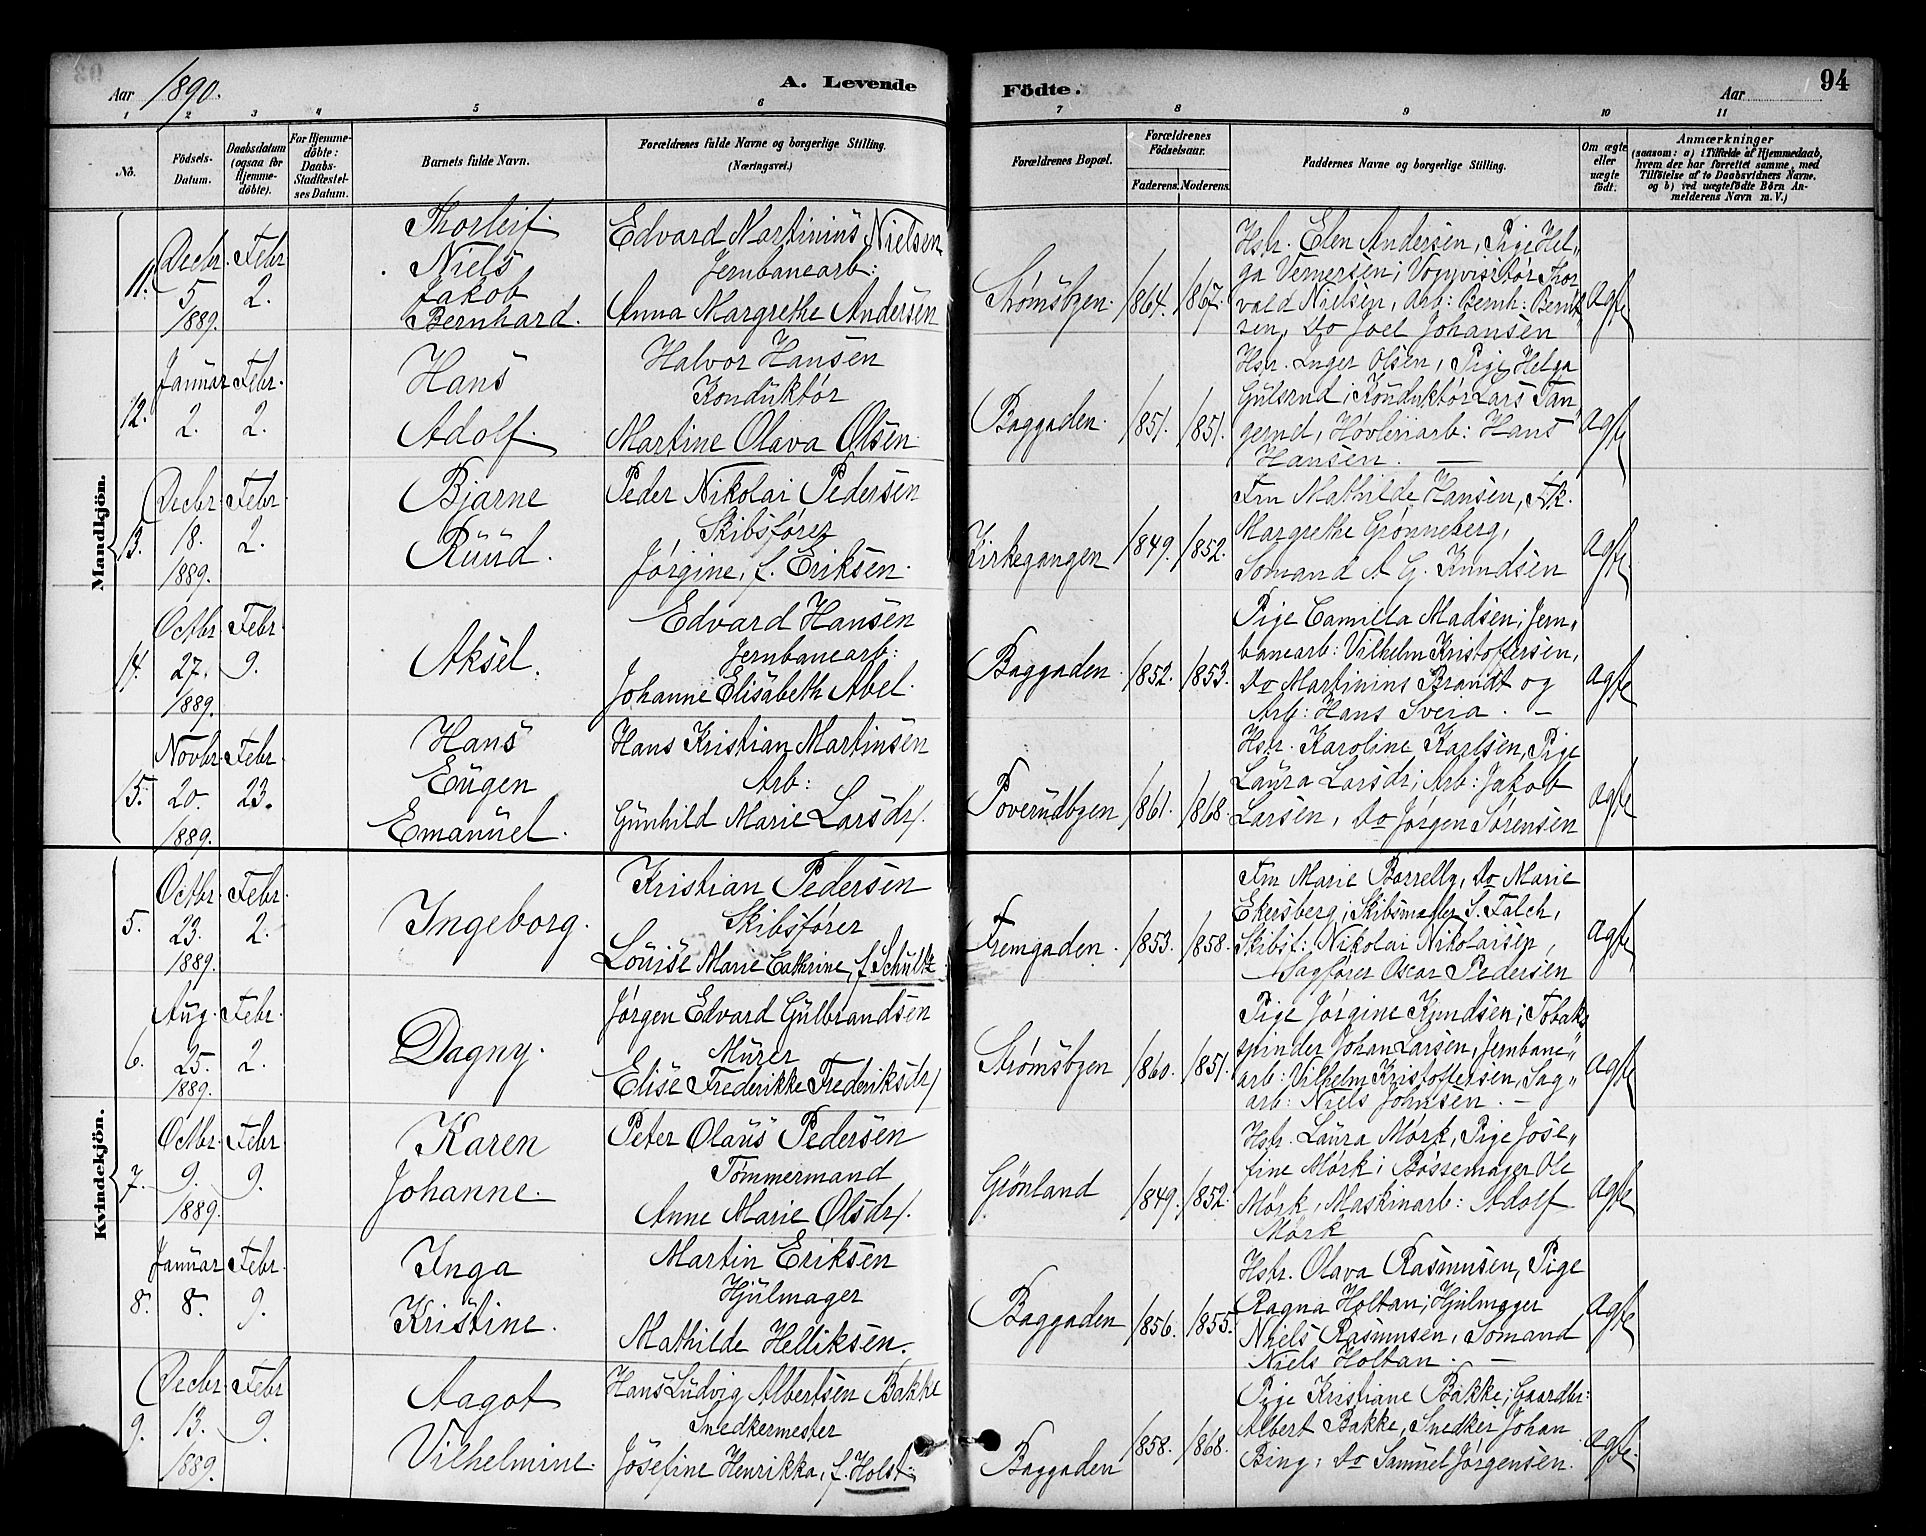 Aar 1890.
A. Levende
Födte.
Aar
94
1 2 3 4 5 6 7 8 9 10 11
No.
Födsels-Datum.
Daabsdatum (ogsaa for Hjemme-döbte).
For Hjemme-döbte: Daabs-Stadfæstel-ses Datum.
Barnets fulde Navn.
Forældrenes fulde Navne og borgerlige Stilling. (Næringsvei.)
Forældrenes Bopæl.
Forældrenes Födselsaar.
Faderens. Moderens.
Faddernes Navne og borgerlige Stilling.
Om ægte eller uægte født.
Anmærkninger
(saasom: a) i Tilfælde af Hjemmedaab, hvem der har forrettet samme, med Tilföielse af to Daabsvidners Navne, og b) ved uægtefödte Börn An-melderens Navn m. V.)
Mandkjön.
11. Decbr. 5 1889. Febr 2.
Thorleif
Niels
Jakob
Bernhard.
Edvard Martinius Nielsen
Jernbanearb:
Anna Margrethe Andersen
Strømsbyen. 1864. 1867.
Hstr. Elen Andersen, Pige Hel„
ga Vernersen; Vognvisitør Thor
vald Nielsen, Arb: Bernh: Bernt„
sen, Do Joel Johansen
ægte
12. Januar 2. Febr. 2.
Hans
Adolf.
Halvor Hansen
Konduktør
Martine Olava Olsen
Baggaden. 1851. 1851.
Hstr. Inger Olsen, Pige Helga
Gulsrud; Konduktør Lars Tan„
gerud, Høvleriarb: Hans
Hansen. —
ægte
13. Decbr. 18. 1889. Febr. 2.
Bjarne
Ruud.
Peder Nikolai Pedersen
Skibsfører
Jørgine, f. Eriksen.
Kirkegangen 1849. 1852.
Fru Mathilde Hansen, Frk.
Margrethe Grønneberg,
Sømand A G. Knudsen
ægte.
14. Octbr. 27. 1889. Febr. 9.
Aksel.
Edvard Hansen
Jernbanearb:
Johanne Elisabeth Abel.
Baggaden. 1852. 1853.
Pige Camilla Madsen; Jern„
banearb: Vilhelm Kristoffersen,
Do Martinius Brandt og
Arb: Hans Svera. —
ægte
15. Novbr. 20. 1889. Febr. 23.
Hans
Eugen
Emanuel.
Hans Kristian Martinsen
Arb:
Gunhild Marie Larsdr.
Poverudbyen 1861. 1868.
Hstr. Karoline Karlsen, Pige
Laura Larsdr; Arb: Jakob
Larsen, Do Jørgen Sørensen
ægte
Kvindekjön.
5. Octbr. 23. 1889. Febr. 2.
Ingeborg.
Kristian Pedersen
Skibsfører
Louise Marie Cathrine, f. Schultz
Fremgaden. 1853. 1858.
Fru Marie Borrelly, Do Marie
Ekersberg; Skibsmægler S. Falch,
Skibsf: Nikolai Nikolaisen,
Sagfører Oscar Pedersen
ægte
6. Aug. 25. 1889. Febr. 2.
Dagny.
Jørgen Edvard Gulbrandsen
Murer
Elise Frederikke Frederiksdr
Strømsbyen 1860. 1851.
Pige Jørgine Knudsen; Tobaks
spinder Johan Larsen, Jernbane„
arb: Vilhelm Kristoffersen, Sag„
arb: Niels Johnsen. —
ægte
7. Octbr. 9. 1889. Febr 9.
Karen
Johanne.
Peter Olaus Pedersen
Tømmermand
Anne Marie Olsdr.
Grönland 1849. 1852.
Hstr. Laura Mörk, Pige Jose„
fine Mörk; Bössemager Ole
Mörk, Maskinarb: Adolf
Mörk
ægte
8. Januar 8. Febr. 9.
Inga
Kristine.
Martin Eriksen
Hjulmager
Mathilde Helliksen.
Baggaden 1856. 1855.
Hstr. Olava Rasmusen, Pige
Ragna Holtan; Hjulmager
Niels Rasmusen, Sømand
Niels Holtan. —
ægte
9. Decbr 13. 1889. Febr 9.
Aagot
Vilhelmine.
Hans Ludvig Albertsen Bakke
Snedkermester
Josefine Henrikka, f. Holst.
Baggaden 1858. 1868.
Pige Kristiane Bakke; Gaardbr:
Albert Bakke, Snedker Johan
Bing, Do Samuel Jørgensen.
ægte.